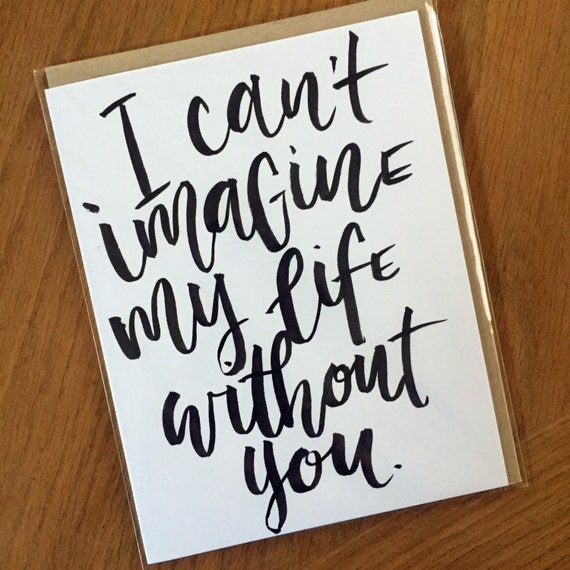 I can't
imagine
my life
without
you.